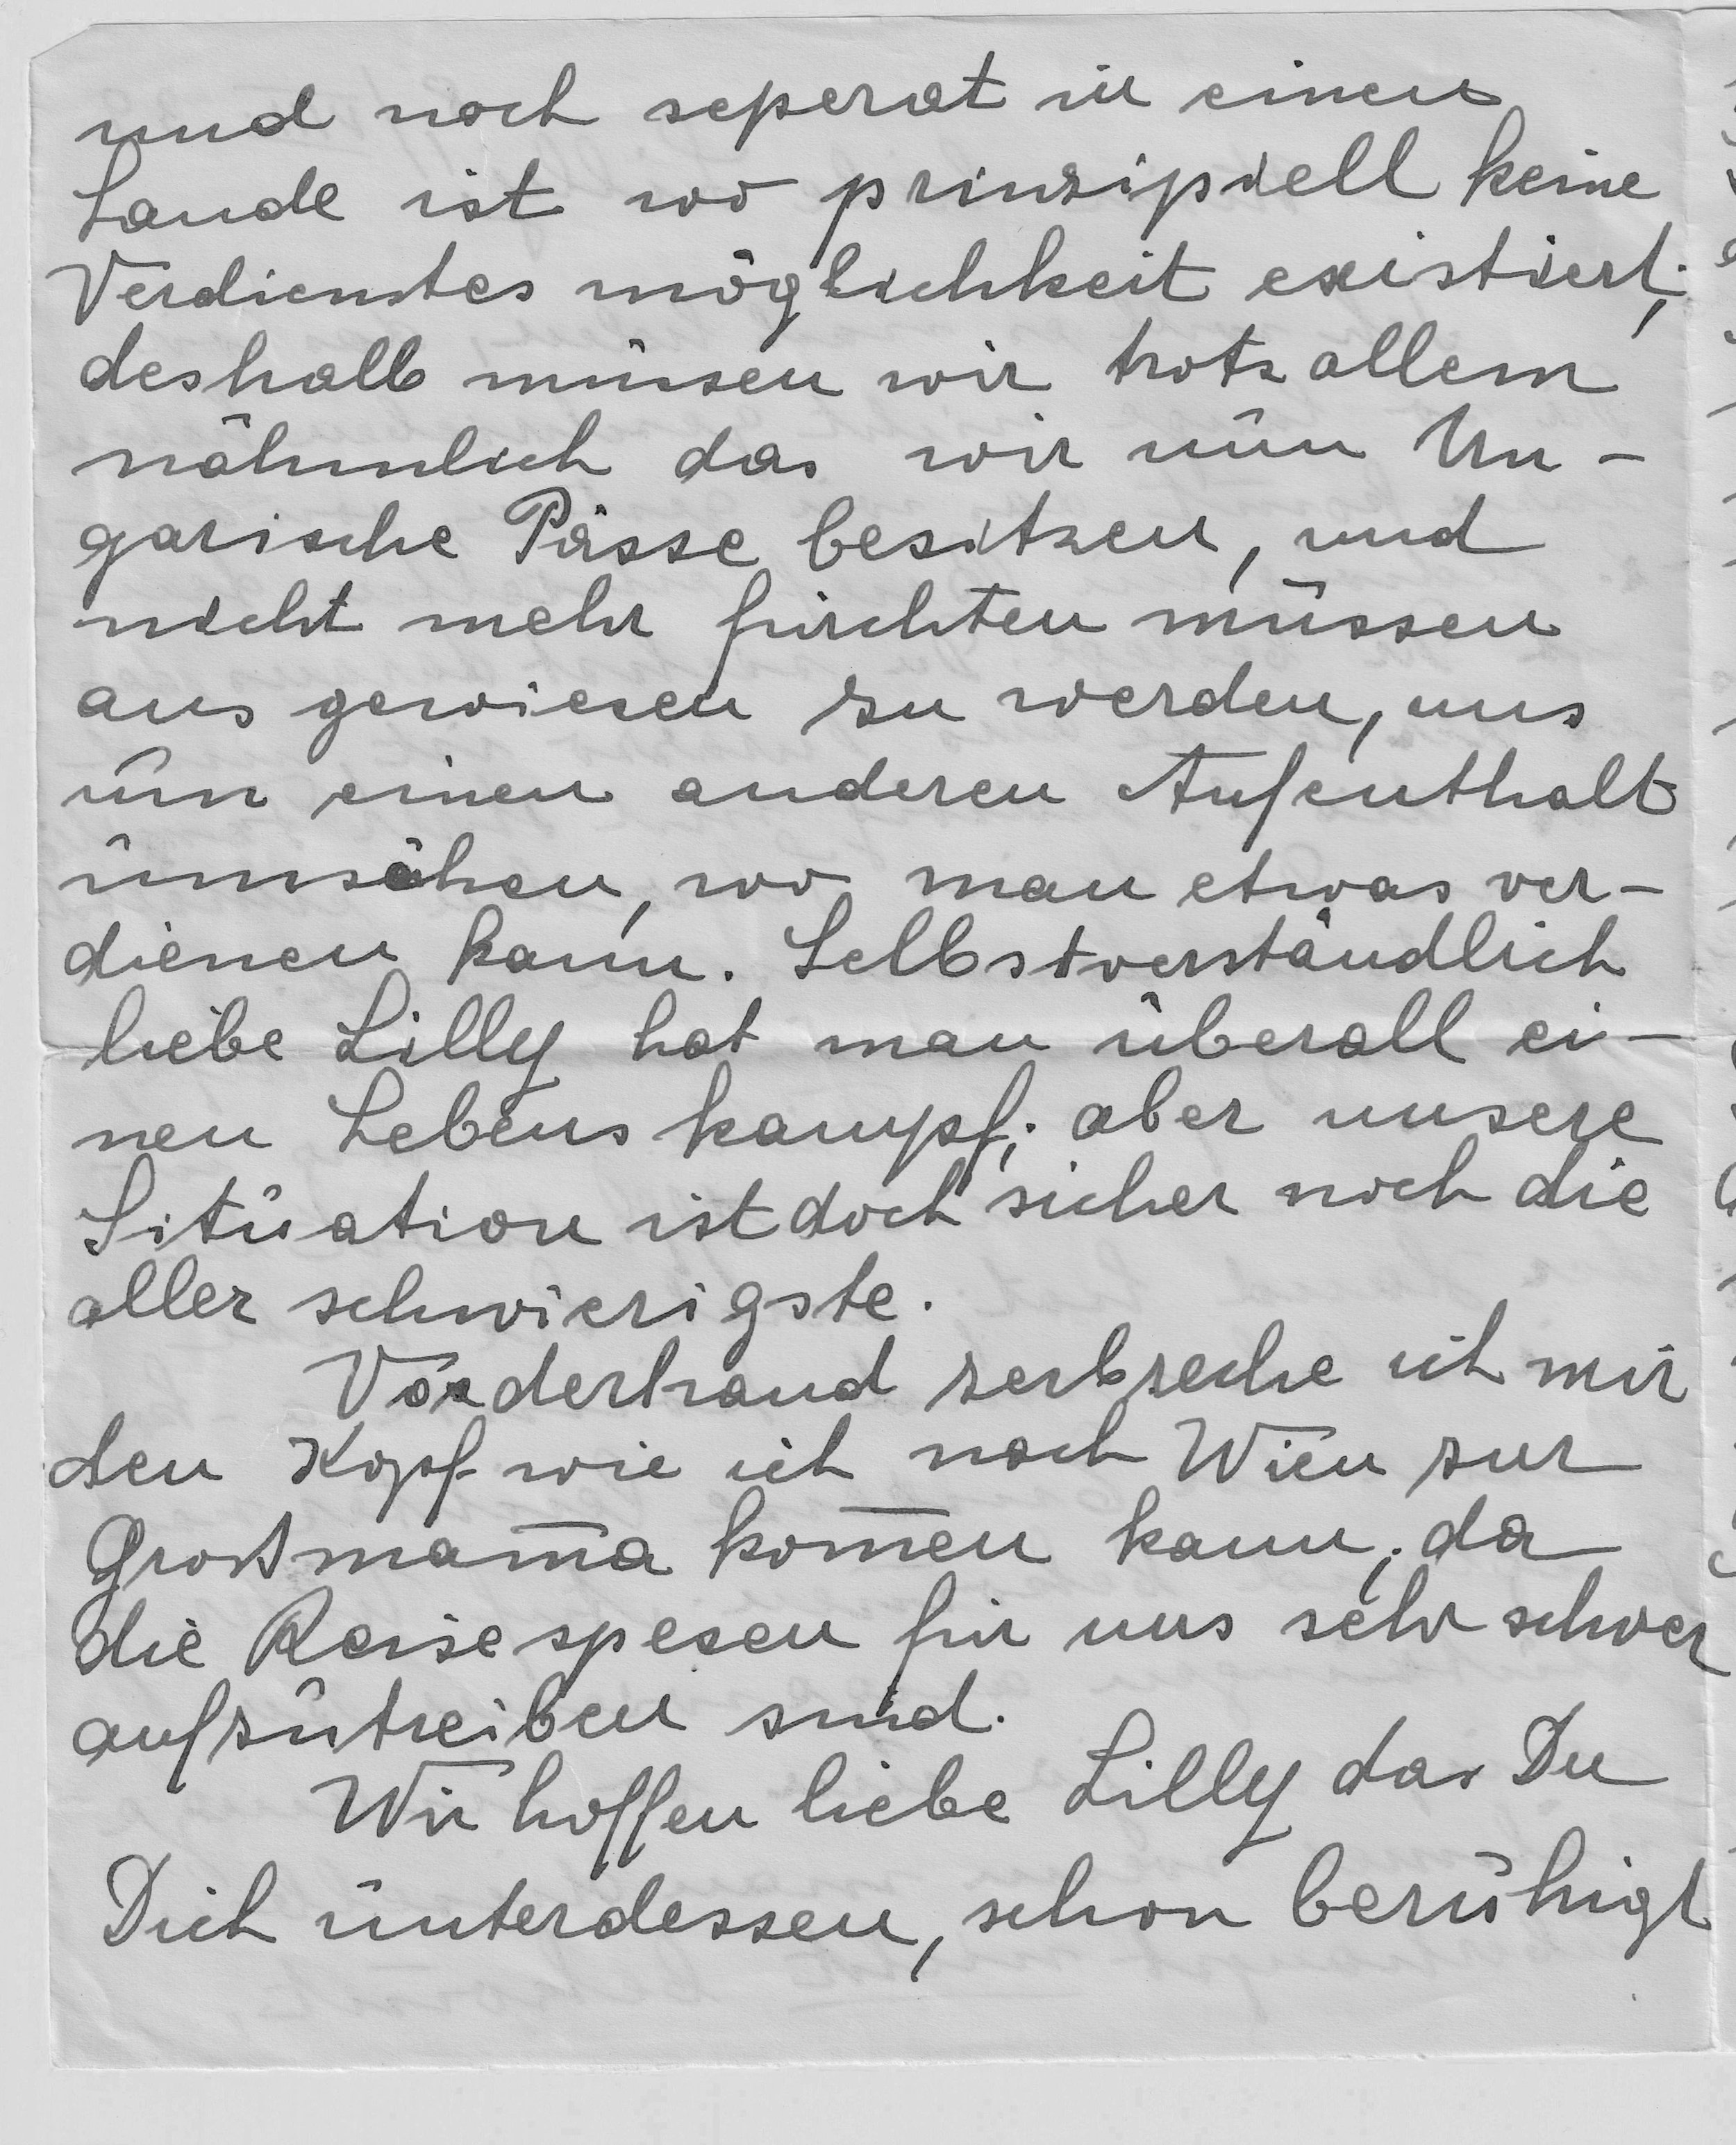 und noch seperat in einen
Lande ist wo prinzipiell keine
Verdienstes möglichkeit existiert;
deshalb müssen wir trotz allem
nähmlich das wir nun Un-
garische Pässe besitzen, und
nicht mehr fürchten müssen
aus gewiesen zu werden, uns
um einen anderen Aufenthalt
umsehen, wo man etwas ver-
dienen kann. Selbstverständlich
liebe Lilly hat man überall ei-
nen Lebens kampf; aber unsere
Situation ist doch sicher noch die
aller schwierigste.
Vorderhand zerbreche ich mir
den Kopf wie ich nach Wien zur
Großmam̅a kom̅en kann; da
die Reise spesen für uns sehr schwer
aufzutreiben sind.
Wir hoffen liebe Lilly das Du
Dich unterdessen, schon beruhigt